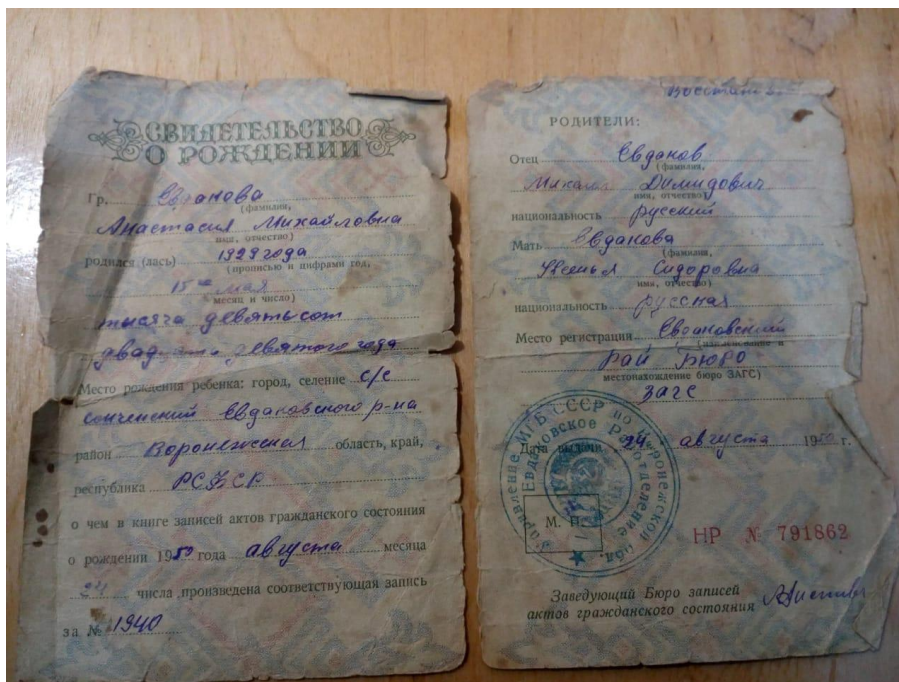 СВИДЕТЕЛЬСТВО
О РОЖДЕНИИ
Гр. Евданова
(фамилия,
Анастасия Михайловна
имя, отчество)
родился (лась) 1929 года
(прописью и цифрами год,
15го мая
месяц и число)
тысяча девятьсот
двадцати девятого года
Место рождения ребенка: город, селение с/с
Евдаковского р-на
район Воронежская область, край,
республика РСФСР
о чем в книге записей актов гражданского состояния
о рождении 1950 года августа месяца
24 числа произведена соответствующая запись
за № 1940
РОДИТЕЛИ:
Отец Евданов
(фамилия,
Михаил Димидович
имя, отчество)
национальность русский
Мать Евданова
(фамилия,
Сидоровна
имя, отчество)
национальность русская
Место регистрации Евдаковский
(наименование и
рай Бюро
местонахождение бюро ЗАГС)
загс
Дата выдачи 24 августа 1950 г.
Управление МГБ СССР по Воронежской обл.
Евдаковское отделение
М. П.
НР № 791862
Заведующий Бюро записей
актов гражданского состояния